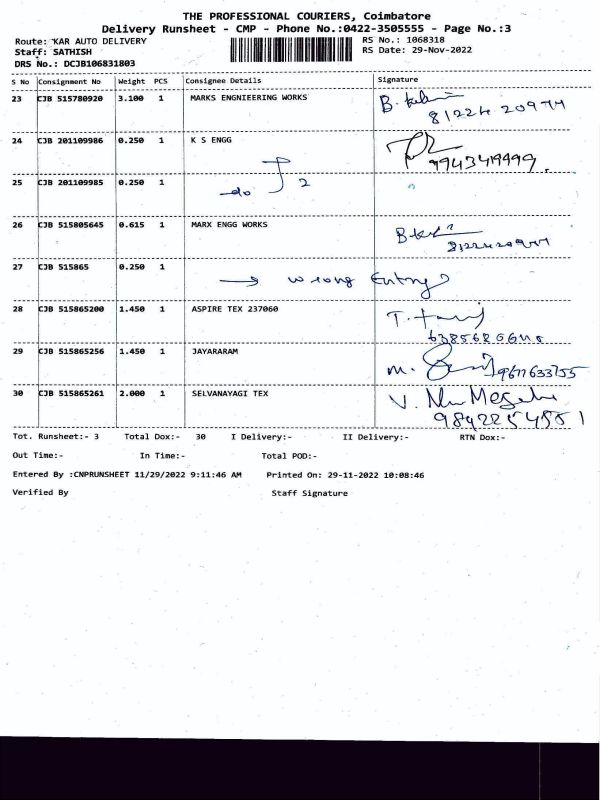 THE PROFESSIONAL COURIERS, Coimbatore
Delivery Runsheet - CMP - Phone No.:0422-3505555 - Page No.:3
Route: KAR AUTO DELIVERY RS No.: 1068318
Staff: SATHISH RS Date: 29-Nov-2022
DRS No.: DCJB106831803
S No Consignment No Weight PCS Consignee Details Signature
23 CJB 515780920 3.100 1 MARKS ENGNIEERING WORKS B.
24 CJB 201109986 0.250 1 K S ENGG
9943419999.
25 CJB 201109985 0.250 1 do 2
26 CJB 515805645 0.615 1 MARX ENGG WORKS
27 CJB 515865 0.250 1
→ wrong Entry
28 CJB 515865200 1.450 1 ASPIRE TEX 237060 T.
29 CJB 515865256 1.450 1 JAYARARAM M. 9611633755
30 CJB 515865261 2.000 1 SELVANAYAGI TEX V.
Tot. Runsheet:- 3 Total Dox:- 30 I Delivery:- II Delivery:- RTN Dox:-
Out Time:- In Time:- Total POD:-
Entered By :CNPRUNSHEET 11/29/2022 9:11:46 AM Printed On: 29-11-2022 10:08:46
Verified By Staff Signature